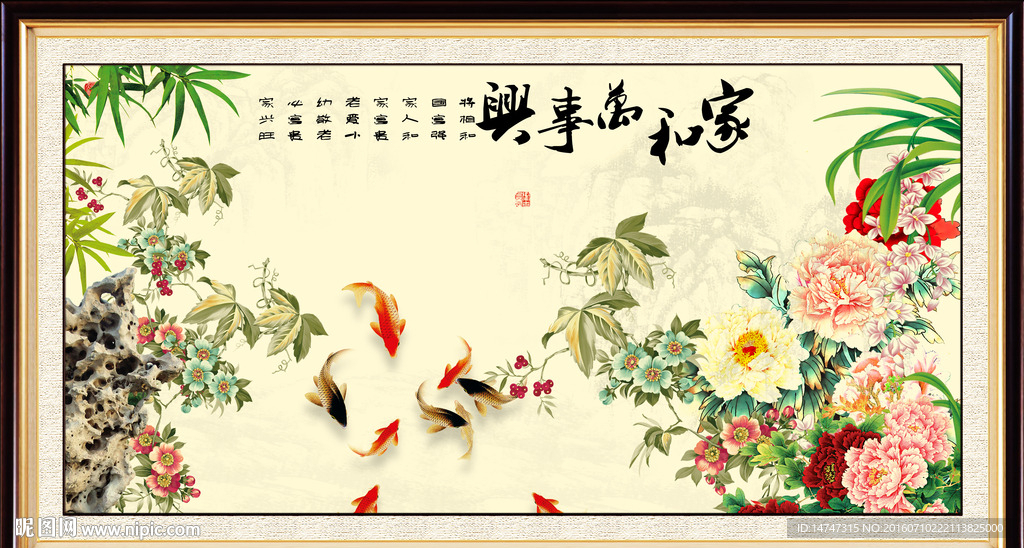 家和萬事興
将相和
国富强
家人和
家富贵
老爱小
幼敬老
必富贵
家兴旺
昵图网 www.nipic.com
ID:14747315 NO:20160710222113825000